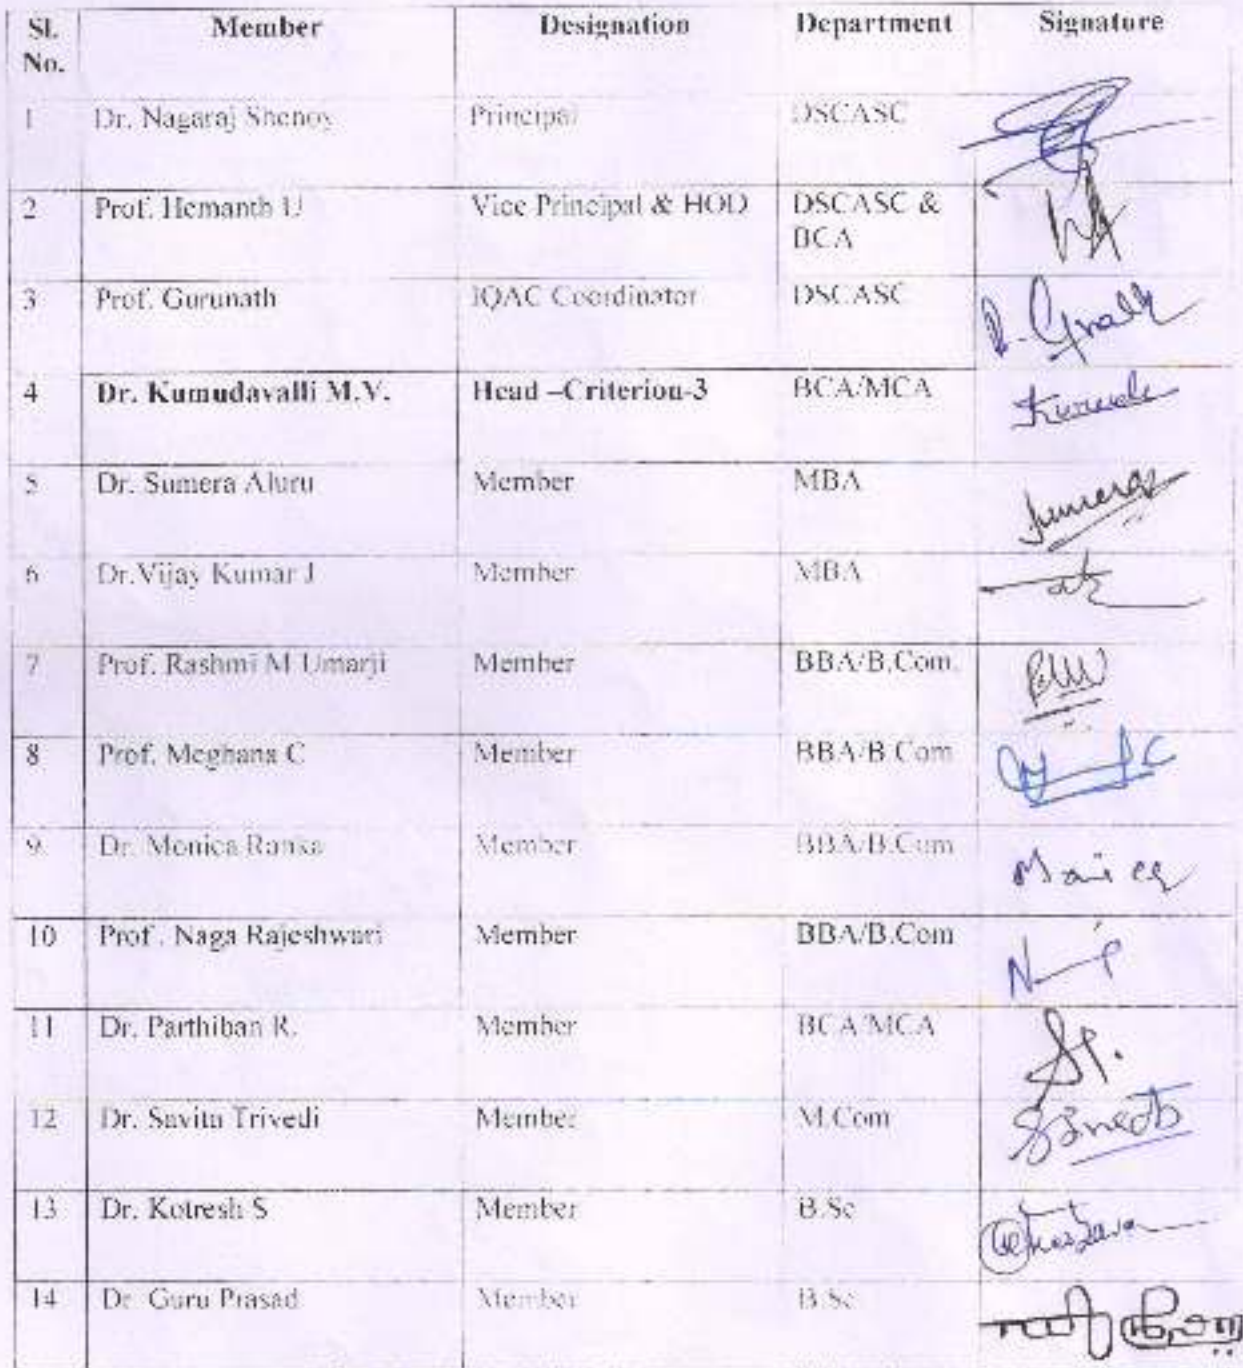 Sl. No. Member Designation Department Signature
1 Dr. Nagaraj Shenoy Principal DSCASC
2 Prof. Hemanth U Vice Principal & HOD DSCASC & BCA
3 Prof. Gurunath IQAC Coordinator DSCASC
4 Dr. Kumudavalli M.V. Head –Criterion-3 BCA/MCA
5 Dr. Sumera Aluru Member MBA
6 Dr.Vijay Kumar J Member MBA
7 Prof. Rashmi M Umarji Member BBA/B.Com.
8 Prof. Meghana C Member BBA/B.Com
9. Dr. Monica Ranka Member BBA/B.Com
10 Prof . Naga Rajeshwari Member BBA/B.Com
11 Dr. Parthiban R. Member BCA/MCA
12 Dr. Savita Trivedi Member M.Com
13 Dr. Kotresh S Member B.Sc
14 Dr. Guru Prasad Member B.Sc